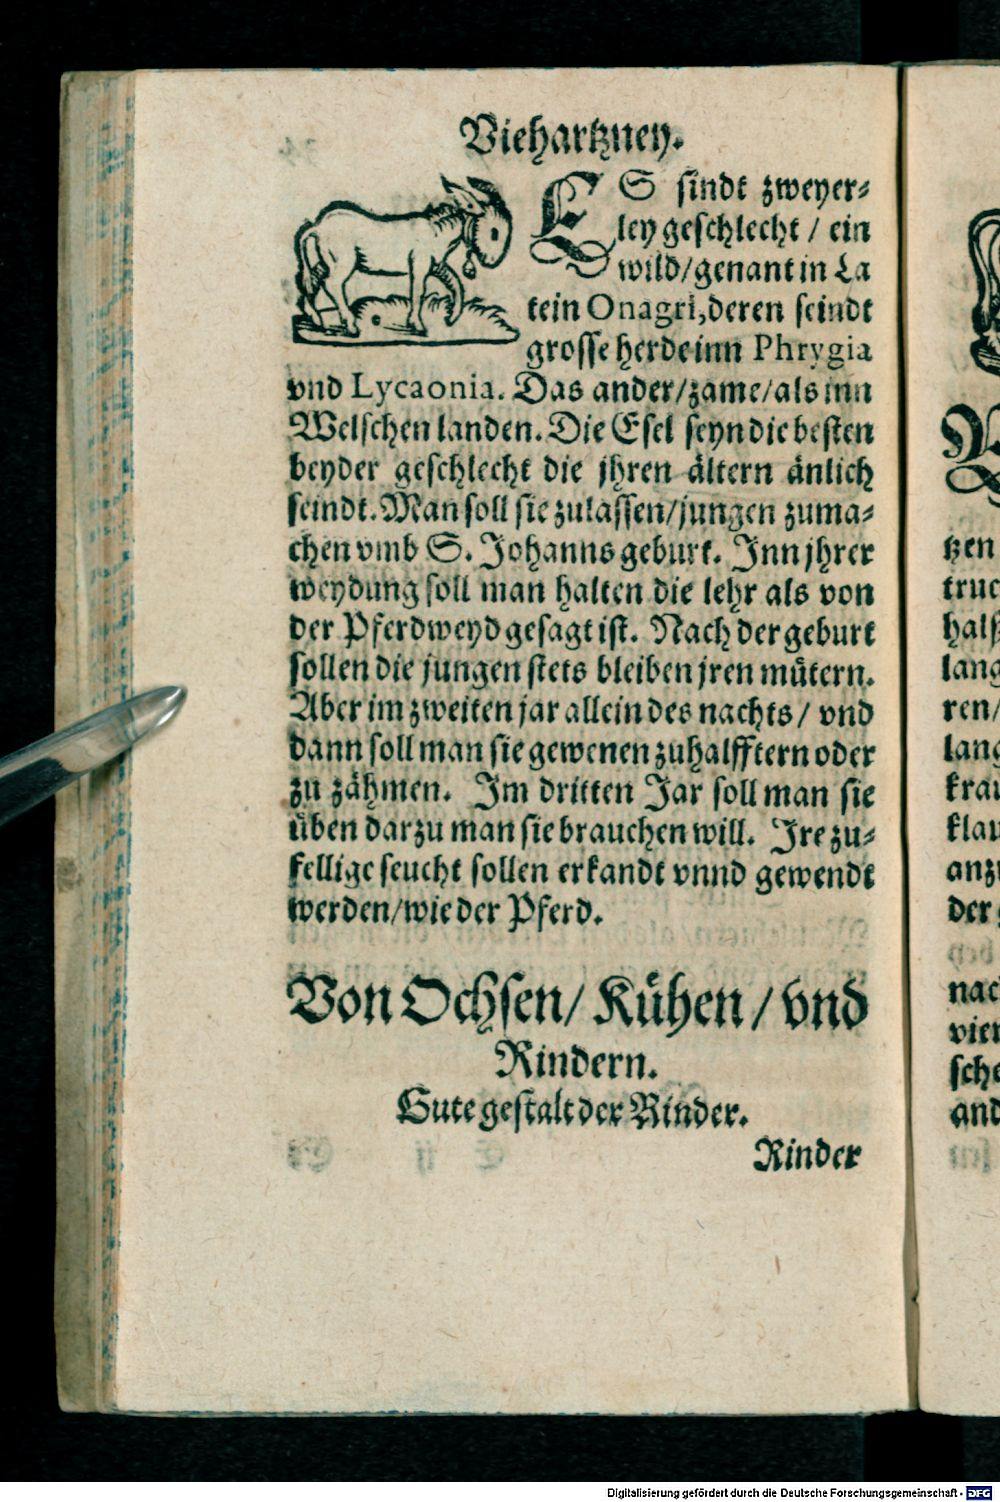 Viehartzney.
ES sindt zweyer⸗
ley geschlecht / ein
wild/genant in La
tein Onagri, deren seindt
grosse herde inn Phrygia
vnd Lycaonia. Das ander/zame/als inn
Welschen landen. Die Esel seyn die besten
beyder geschlecht die jhren ältern änlich
seindt. Man soll sie zulassen/jungen zuma⸗
chen vmb S. Johanns geburt. Inn jhrer
weydung soll man halten die lehr als von
der Pferdweyd gesagt ist. Nach der geburt
sollen die jungen stets bleiben jren mütern.
Aber im zweiten jar allein des nachts / vnd
dann soll man sie gewenen zuhalfftern oder
zu zähmen. Im dritten Jar soll man sie
üben darzu man sie brauchen will. Ire zu⸗
fellige seucht sollen erkandt vnnd gewendt
werden/wie der Pferd.
Von Ochsen / Kühen / vnd
Rindern.
Gute gestalt der Rinder.
Rinder
tzen
truc
halß
lang
ren/
lang
krau
klau
anzu
der
nac
vier
sche
and
Digitalisierung gefördert durch die Deutsche Forschungsgemeinschaft - DFG